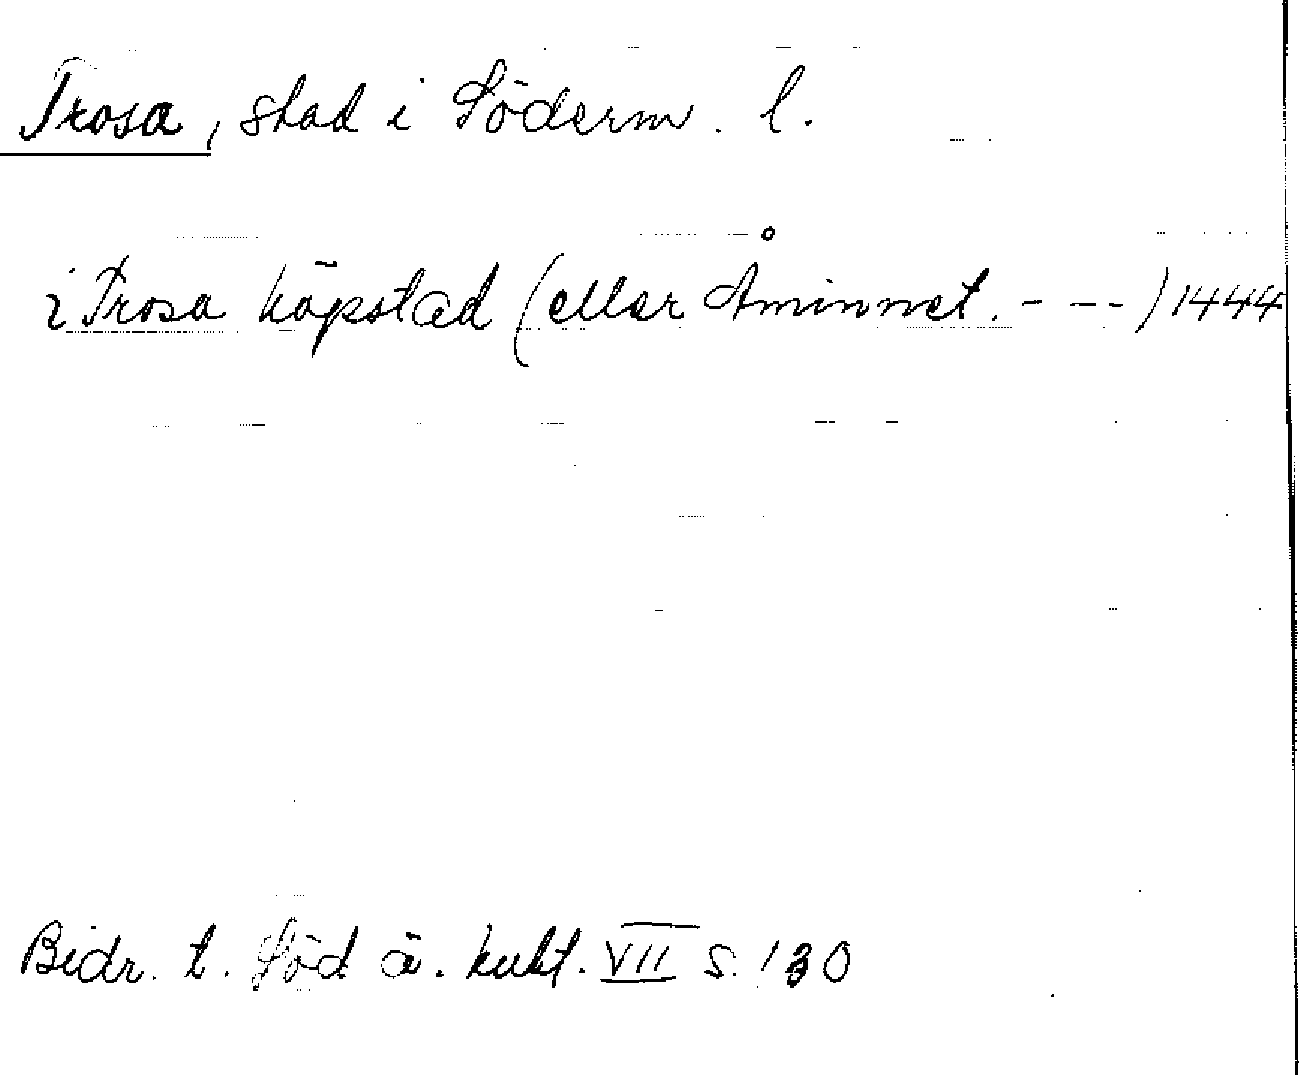 Trosa, stad i Söderm. l.
i Trosa köpstad (eller Åminnet. - --) 1444
Bidr. t. Söd ä. kult. VII s. 130